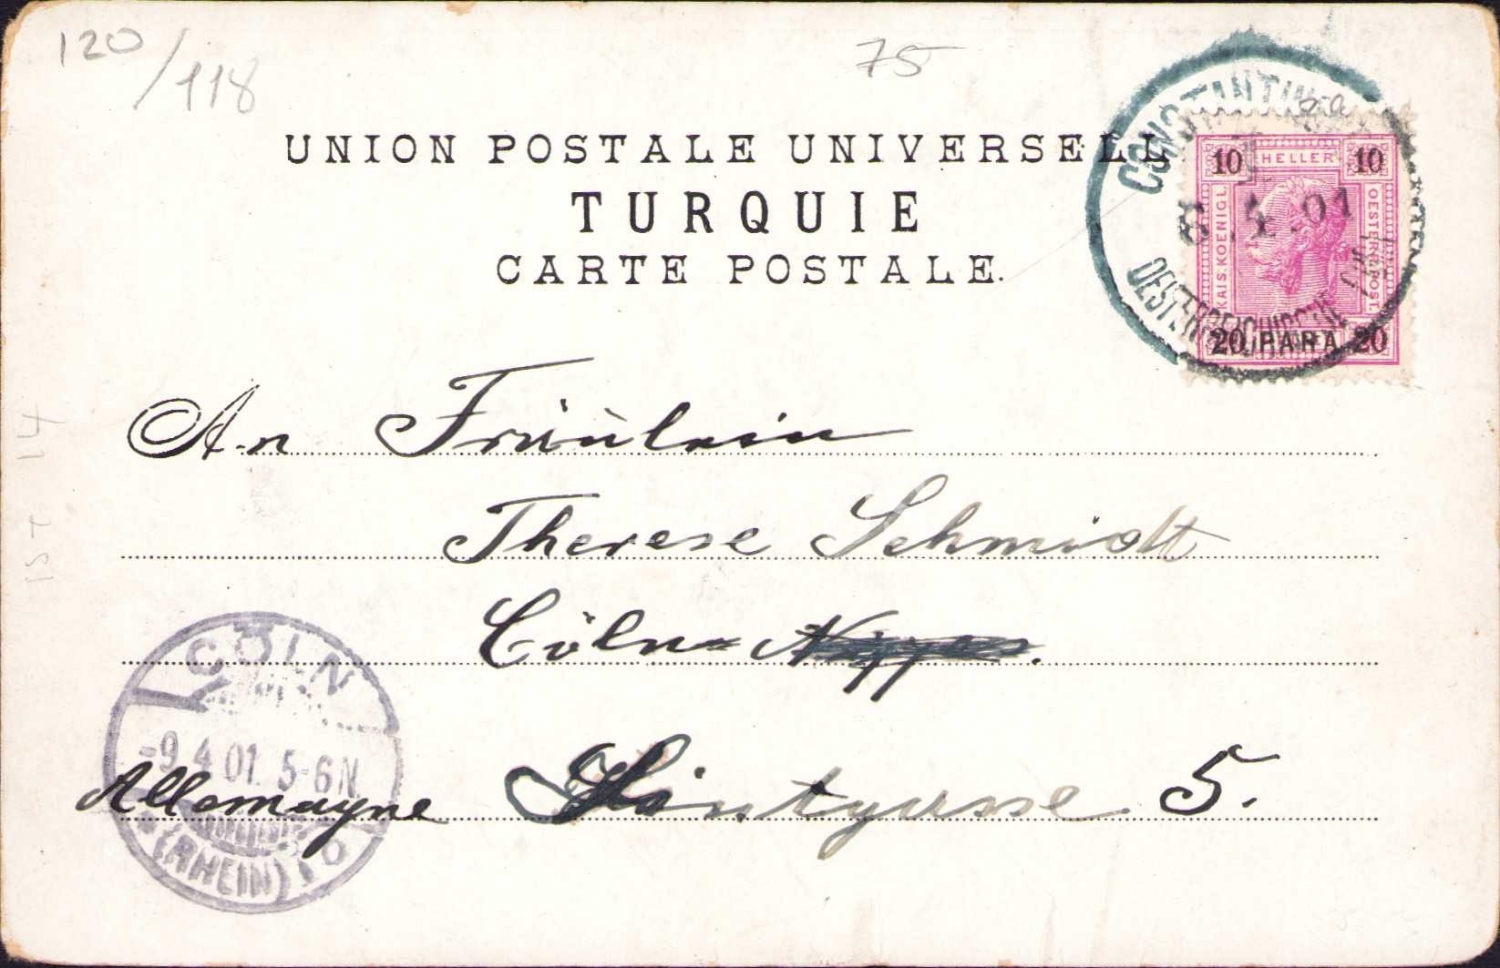 120/118
75
UNION POSTALE UNIVERSELLE
TURQUIE
CARTE POSTALE.
CONSTANTIN
6.4.01
OESTERREICHISCHE
10 HELLER 10
KAIS. KOENIGL.
OESTERR. POST.
20 PARA 20
An Fräulein
Therese Schmidt
Cöln-Nippes.
Allemagne
5.
CÖLN
-9.4.01. 5-6N.
(RHEIN)
IST 14